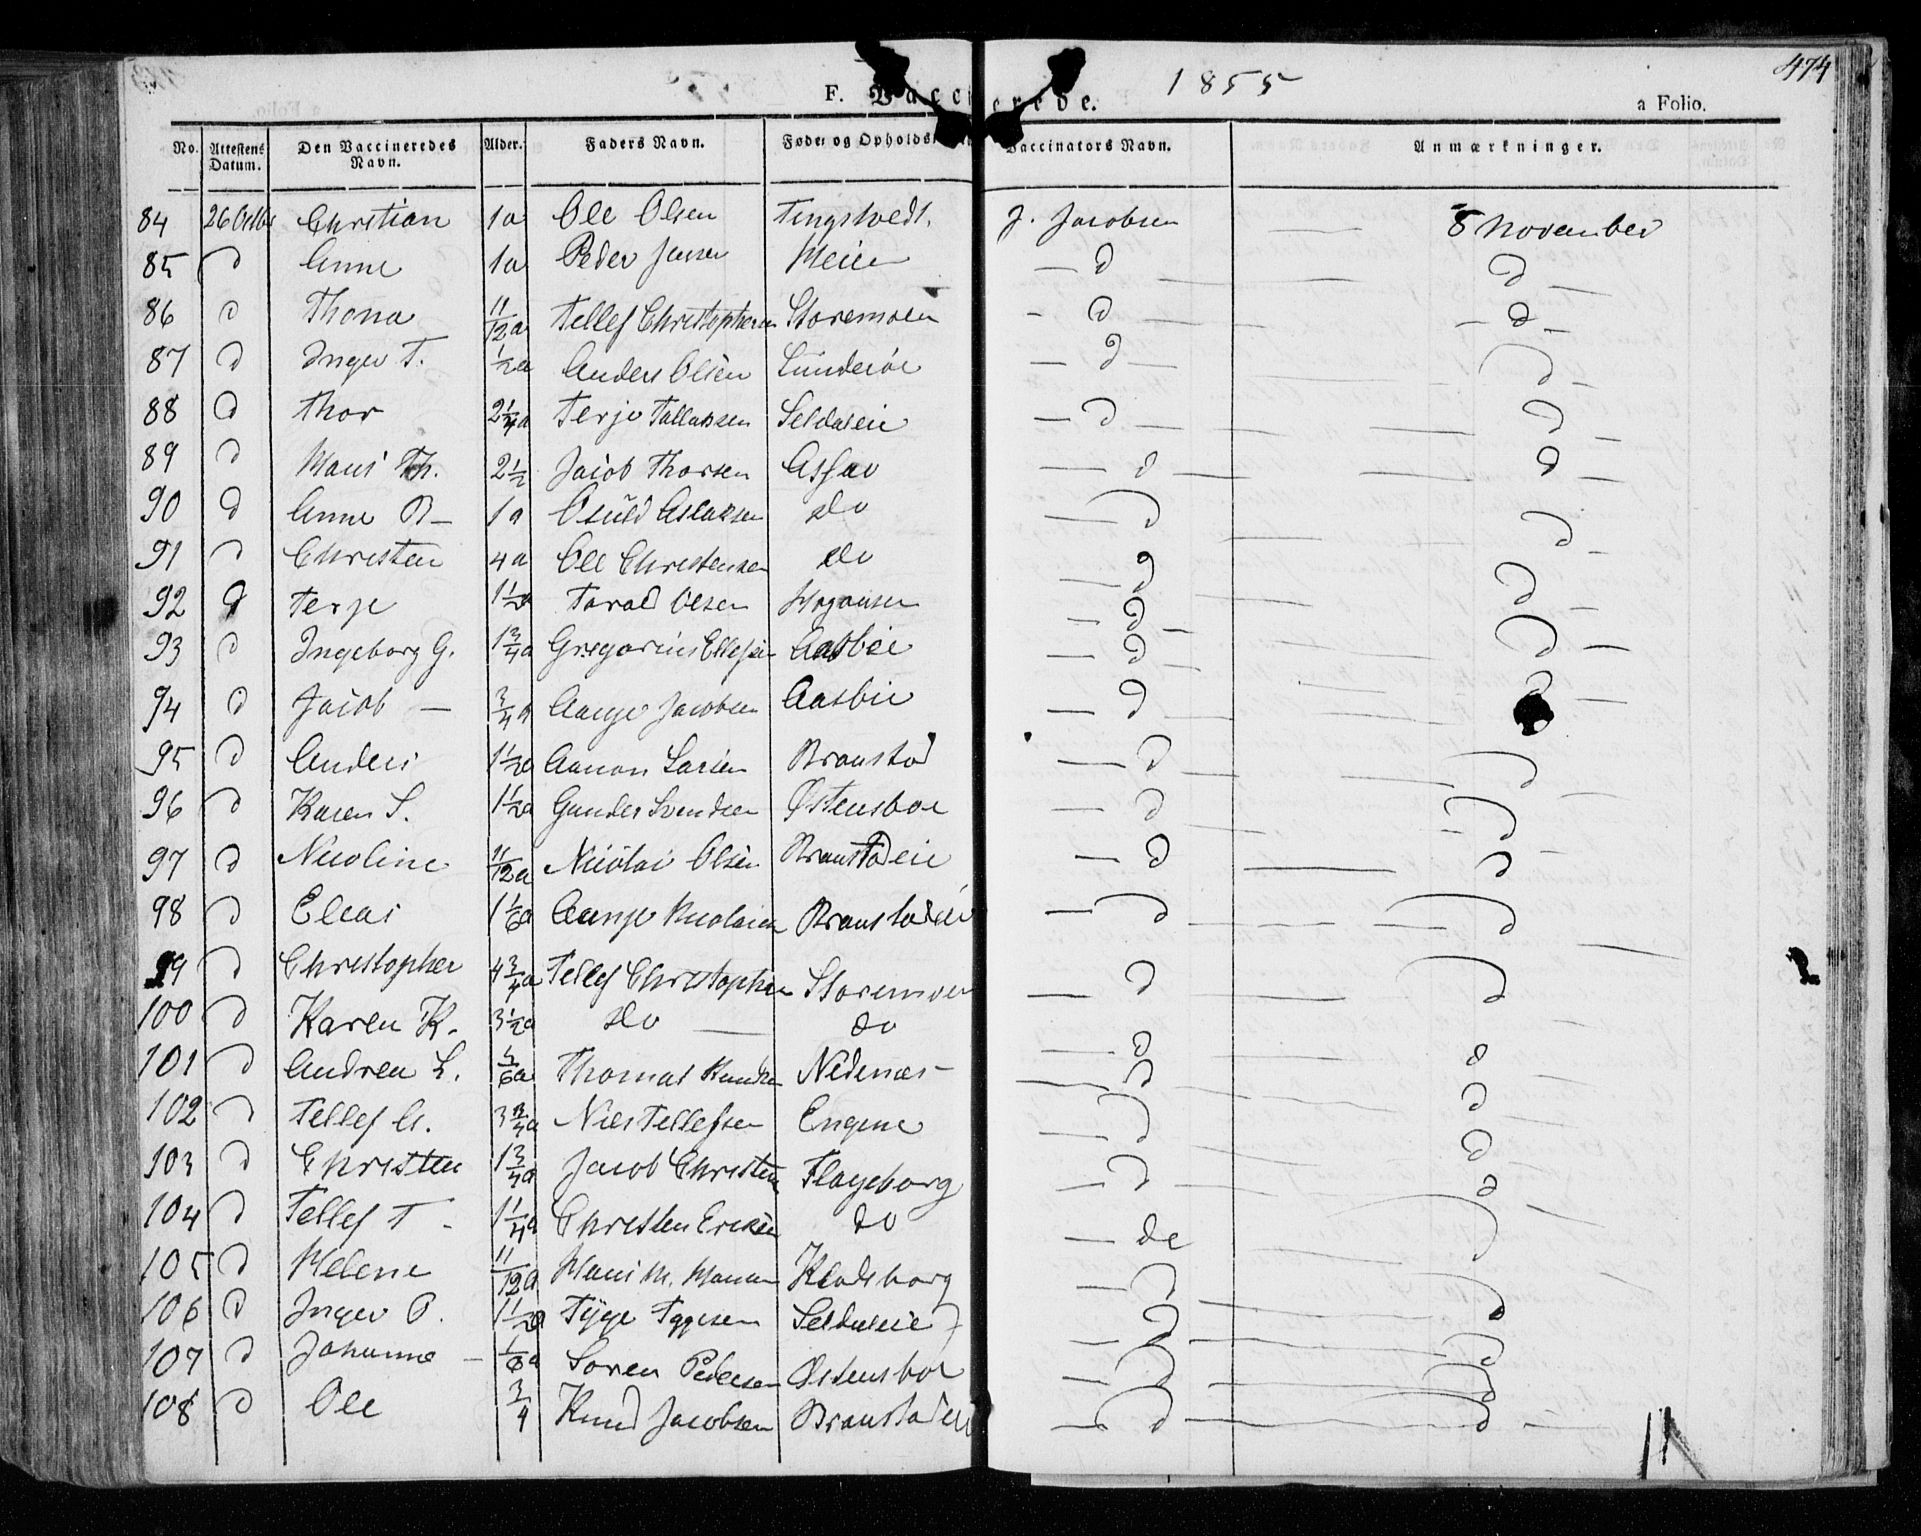 474
F. Vaccinerede. 1855 a Folio.
No. Attestens Datum. Den Vaccineredes Navn. Alder. Faders Navn. Føde- og Opholds Vaccinators Navn. Anmærkninger.
84 26 Octbr Christian 1a Ole Olsen Tingstvedt. J. Jacobsen — 8 November
85 d Anne 1a Peder Jensen — d — d —
86 d Thona 11/12a Tellef Christophersen Storemoen — d — d —
87 d Inger T. 1/2a Anders Olsen — d — d —
88 d Thor 2 1/4a Terje Tallaksen Seldaleie — d — d —
89 d Hans Th. 2 1/2 Jacob Thorsen — d — d —
90 d Anne B — 1a Osuld Aslaksen do — d — d —
91 d Christen 4a Ole Christensen do — d — d —
92 d Terje 1 1/2a Tarald Olsen — d — d —
93 d Ingeborg G. 1 3/4a Gregorius Ellefsen Aasbie — d — d —
94 d Jacob — 3/4a Aanje Jacobsen Aasbie — d — d —
95 d Anders 1 1/2a Aanon Larsen Branstad — d — d —
96 d Karen S. 1 1/2a Gunder Svendsen Østensboe — d — d —
97 d Nicoline 11/12a Nicolai Olsen Branstadeie — d — d —
98 d Elias 1 1/6a Aanje Nicolaisen Branstadeie — d — d —
99 d Christopher 4 3/4a Tellef Christophersen Storemoen — d — d —
100 d Karen K. 3 1/2a do — do — d — d
101 d Andrea L. 5/6a Thomas Knudsen Nedenæs — d — d
102 d Tellef 3 3/4a Niels Tellefsen Engene — d — d
103 d Christen 1 3/4a Jacob Christensen Flageborg — d — d
104 d Tellef T — 1 1/4a Christen Ericksen do — do — d
105 d Helene 11/12a Hans M. Hansen Klodeborg — d — d
106 d Inger P. 1 1/2a Tyge Tygesen Seldaleie — d — d
107 d Johanne — 1/6a Soren Pedersen Østensboe — d — d
108 d Ole 3/4 Knud Jacobsen Branstadeie — d — d —